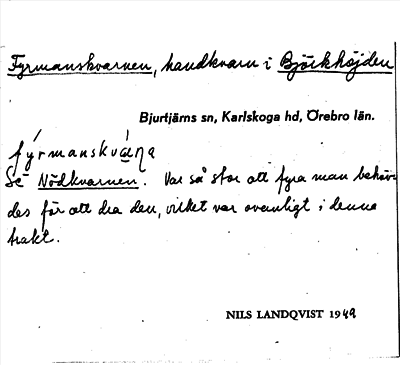 Fyrmanskvarnen, handkvarn i Björkhöjden
Bjurtjärns sn, Karlskoga hd, Örebro län.
fýrmanskvá̱ṇa
Se Nödkvarnen. Var så stor att fyra man behöv-
des för att dra den, vilket var ovanligt i denna
trakt.
NILS LANDQVIST 1949